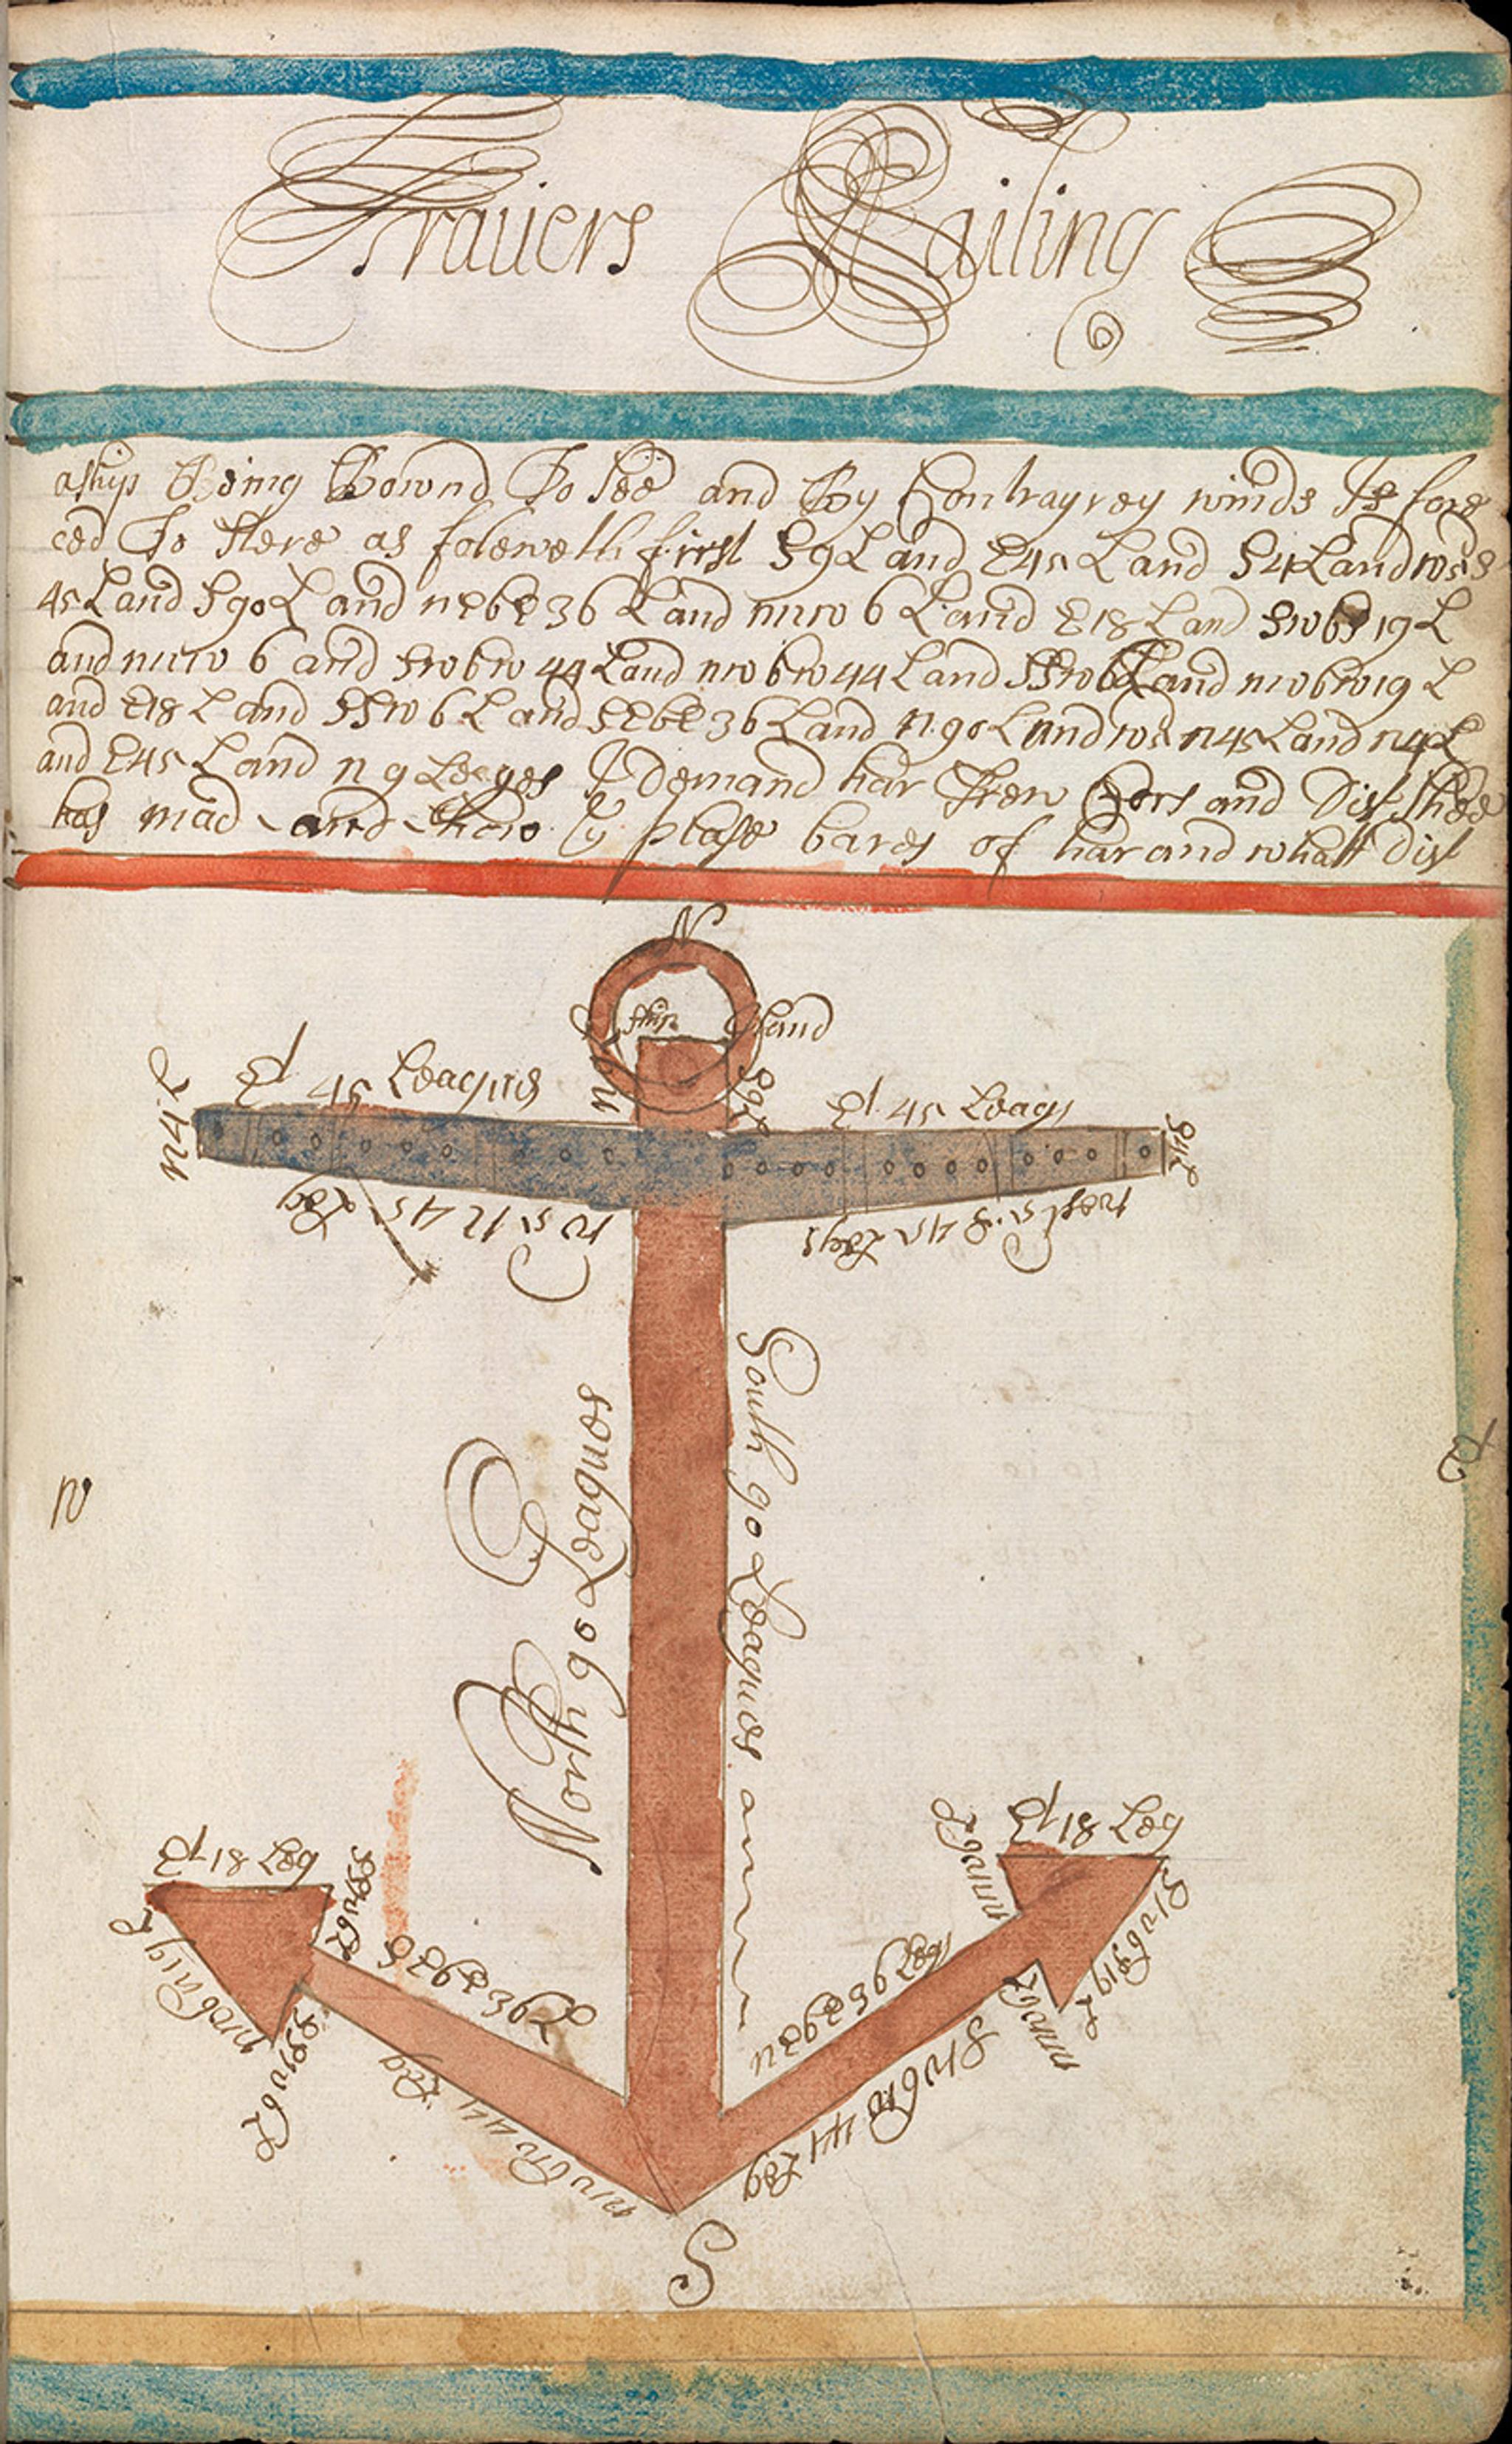 Travers Sailing
aship Being Bownd To See and By Contrayrey winds Is fors
ced To Stere as foleweth first S 9 L and E 45 L and S 4 L and w 5 S
45 L and S 90 L and nEbE 36 L and nnw 6 L and E 18 L and Swbs 19 L
and nnw 6 and Swbw 44 L and nwbw 44 L and SSw 6 L and nwbw 19 L
and E 18 L and SSw 6 L and SEbE 36 L and N 90 L and w 5 n 45 L and n 4 L
and E 45 L and n 9 Leeges I demand har Trew Cors and Dist Shee
has mad and how Ye plase bares of har and whatt Dist
N
Ship Land
n 9 L
S 9 L
Et 45 Leagues
Et 45 Leags
n 4 L
S 4 L
w 5 n 45 Leg
West 5 S 45 Legs
North 90 Leagues
South 90 Leagues
W
E
Et 18 Leg
Et 18 Leg
SSw 6 L
nnw 6 L
nwbn 19 L
Swbs 19 L
SEbE 36 L
nEbE 36 Leg
SSw 6 L
nnw 6 L
nwbw 44 Leg
Swbw 44 Leg
S